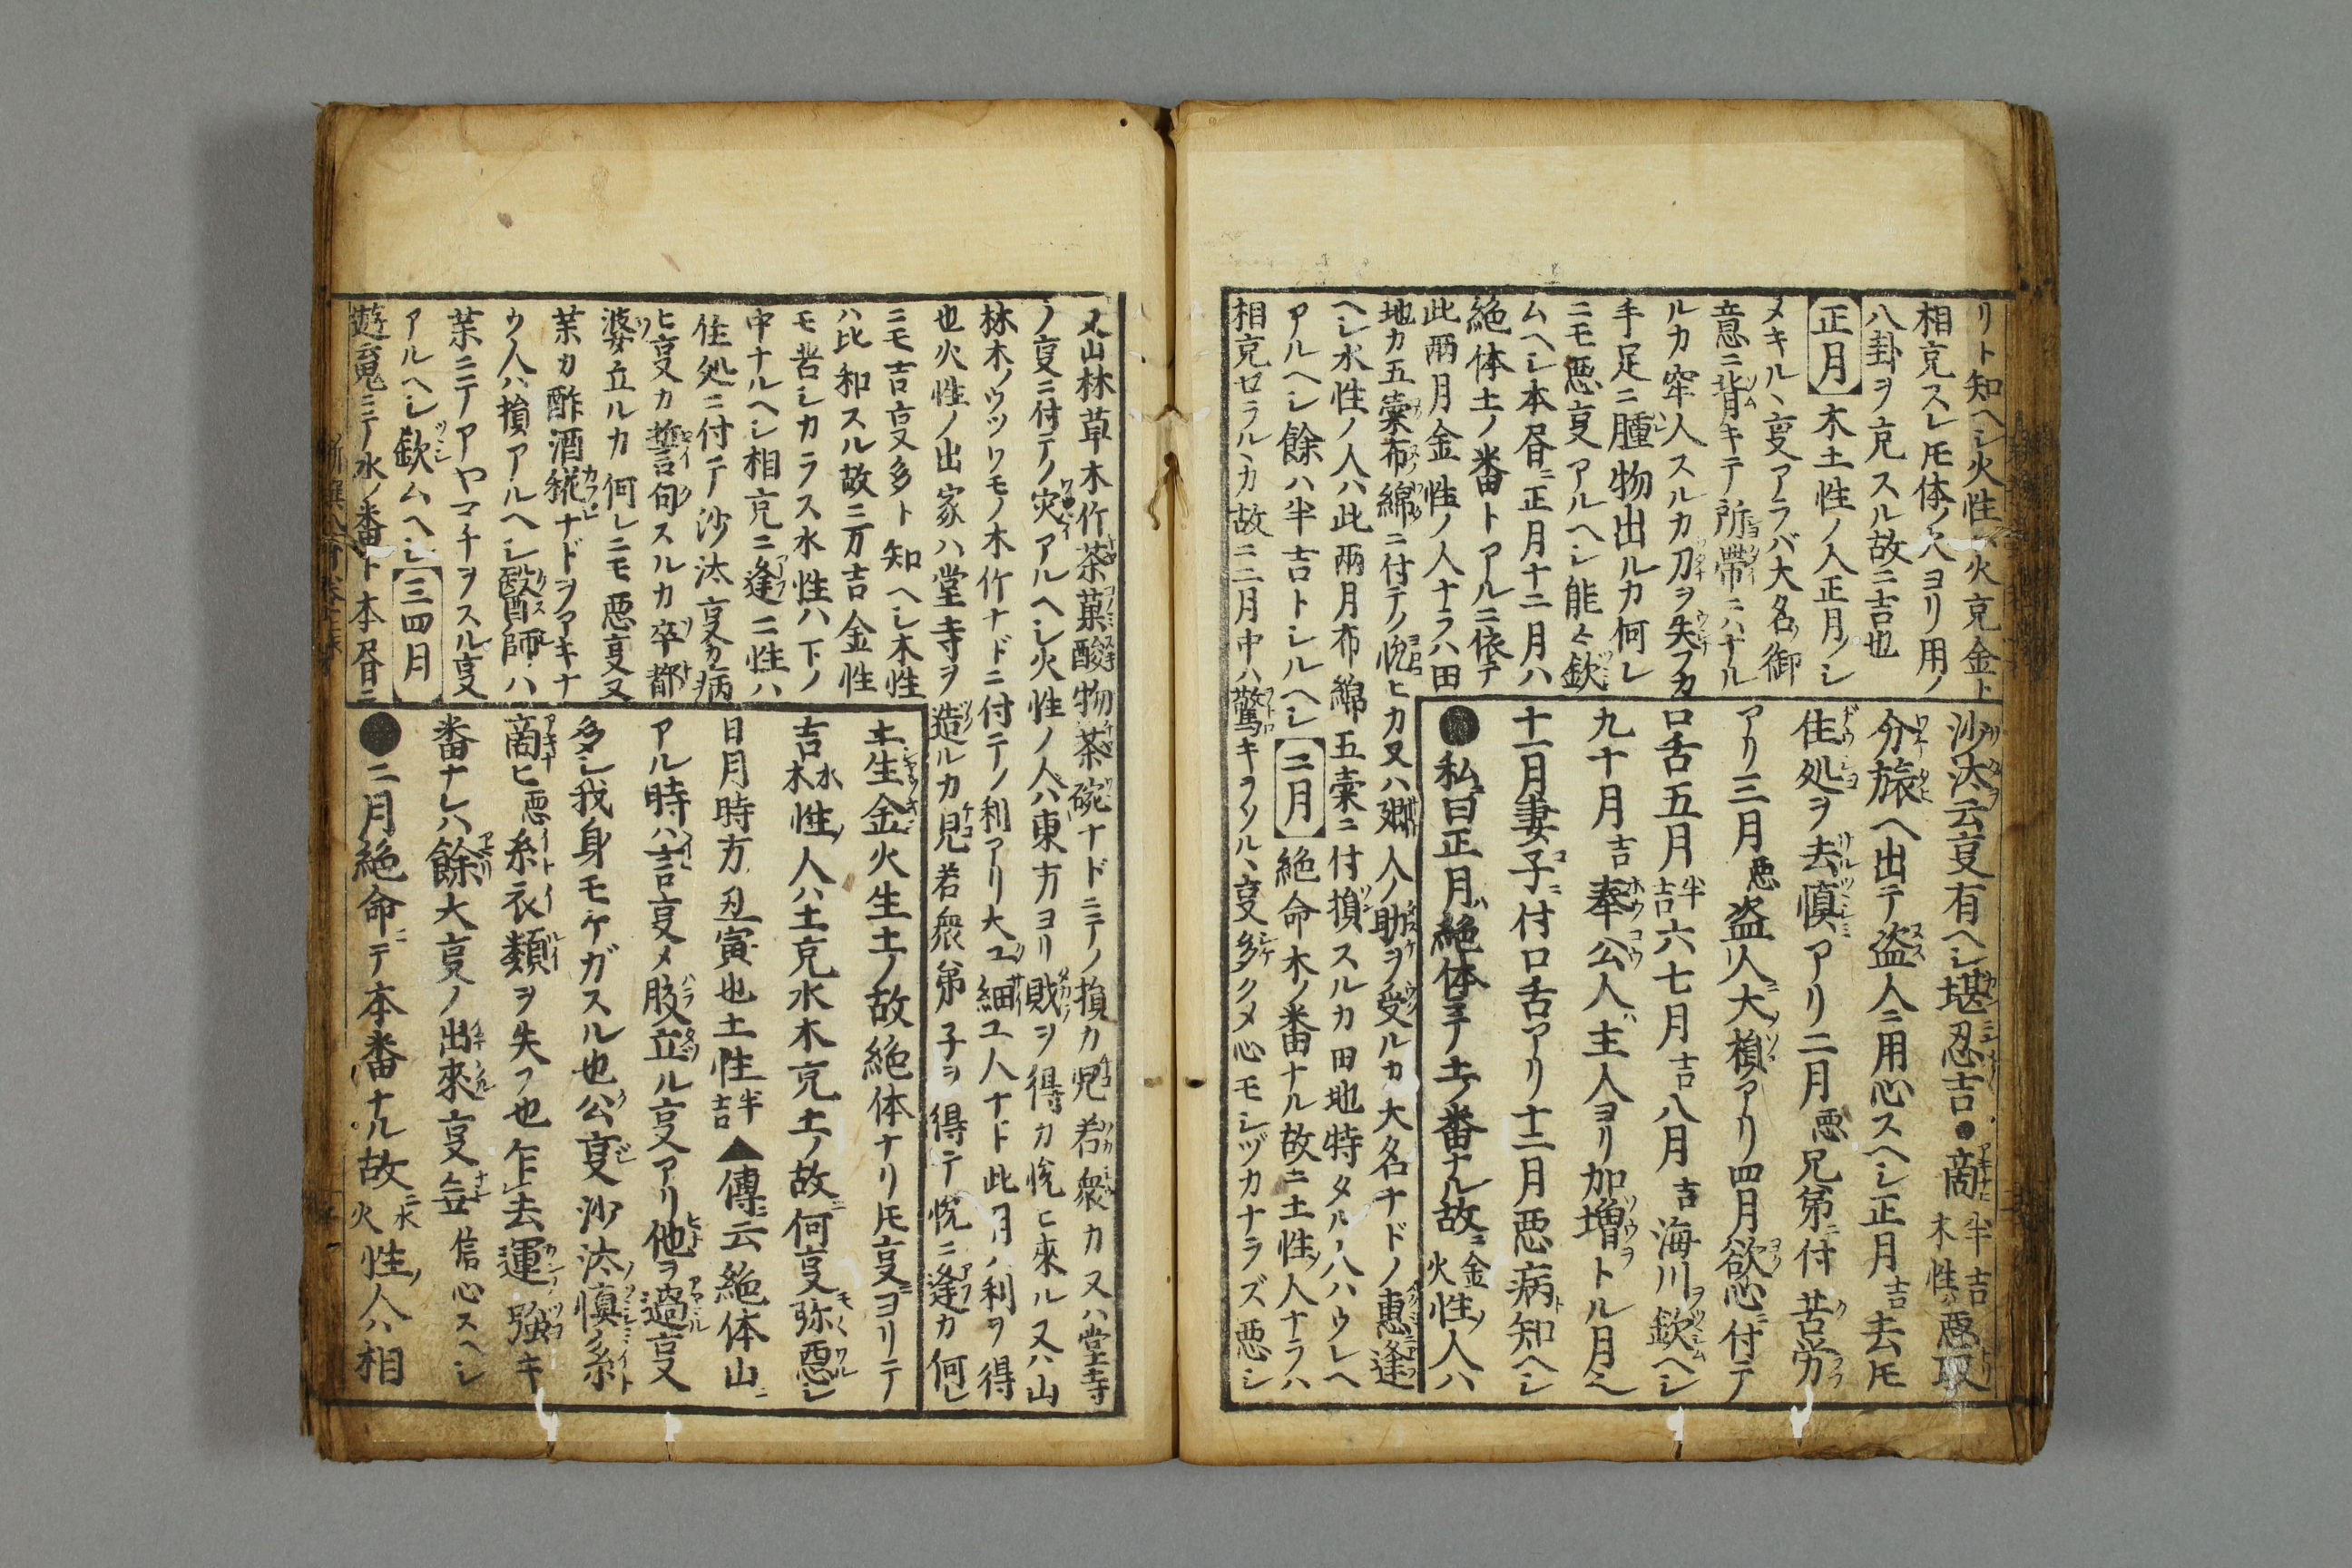 リト知ヘシ火性ハ火克金ト
相克スレ𪜈体ノ欠ヨリ用ノ
八卦ヲ克スル故ニ吉也
正月 木土性ノ人正月ツシ
メキル、事アラバ大名御
意ニ背キテ所帯ニハナル
ルカ牢人スルカ刀ヲ失フカ
手足ニ腫物出ルカ何レ
ニモ悪事アルヘシ能々欽
ムヘシ本層ニ正月十二月ハ
絶体土ノ番トアルニ依テ
此兩月金性ノ人ナラハ田
地カ五棄布綿ニ付テノ悦ヒカ又ハ郷人ノ助ヲ受ルカ大名ナドノ惠逢
ヘシ水性ノ人ハ此兩月布綿五棄ニ付損スルカ田地特タル人ハウレヘ
アルヘシ餘ハ半吉トシルヘシ 二月 絶命木ノ番ナル故ニ土性ノ人ナラハ
相克セラル、カ故ニ二月中ハ驚キヲソル、事多クメ心モシヅカナラズ悪シ
沙汰云事有ヘシ堪忍吉●商半吉木性ハ悪取
分旅ヘ出テ盗人ニ用心スヘシ正月吉去𪜈
住処ヲ去慎アリ二月悪兄弟ニ付苦労
アリ三月悪盗人大損アリ四月欲心ニ付テ
口舌五月半吉六七月吉八月吉海川欽ヘシ
九十月吉奉公人ハ主人ヨリ加増トル月也
十一月妻子ニ付口舌アリ十二月悪病ト知ヘシ
●私曰正月ハ絶体ニテ土ノ番ナル故ニ金火性ノ人ハ
又山林草木竹茶菓酸物茶碗ナドニテノ損カ児若衆カ又ハ堂寺
ノ事ニ付テノ災アルヘシ火性ノ人ハ東方ヨリ財ヲ得カ悦ヒ來ル又ハ山
林木ノウツワモノ木竹ナドニ付テノ利アリ大工細工人ナド此月ノ利ヲ得
也火性ノ出家ハ堂寺ヲ造ルカ児若衆弟子ヲ得テ悦ニ逢カ何レ
ニモ吉事多ト知ヘシ木性
ハ比和スル故ニ万吉金性
モ苦シカラス水性ハ下ノ
中ナルヘシ相克ニ逢二性ハ
住処ニ付テ沙汰事カ病
ヒ事カ誓句スルカ卒都
婆立ルカ何レニモ悪事又
茉カ酢酒糀ナドヲアキナ
ウ人ハ損アルヘシ醫師ハ
茉ニテアヤマチヲスル事
アルヘシ欽ムヘシ 三四月
遊魂ニテ水ノ番ト本層ニ
土生金火生土ノ故絶体ナリ𪜈事ニヨリテ
吉水木性ノ人ハ土克水木克土ノ故ニ何事弥悪シ
日月時方丑寅也土性半吉▲傳ニ云絶体山ニ
アル時ハ言事メ腹立ル事アリ他ヲ過事
多シ我身モケガスル也公事沙汰慎糸
商ヒ悪糸衣類ヲ失フ也乍去運強キ
番ナレハ餘大事ノ出來事無信心スヘシ
●二月絶命ニテ本番ナル故ニ水火性ノ人ハ相